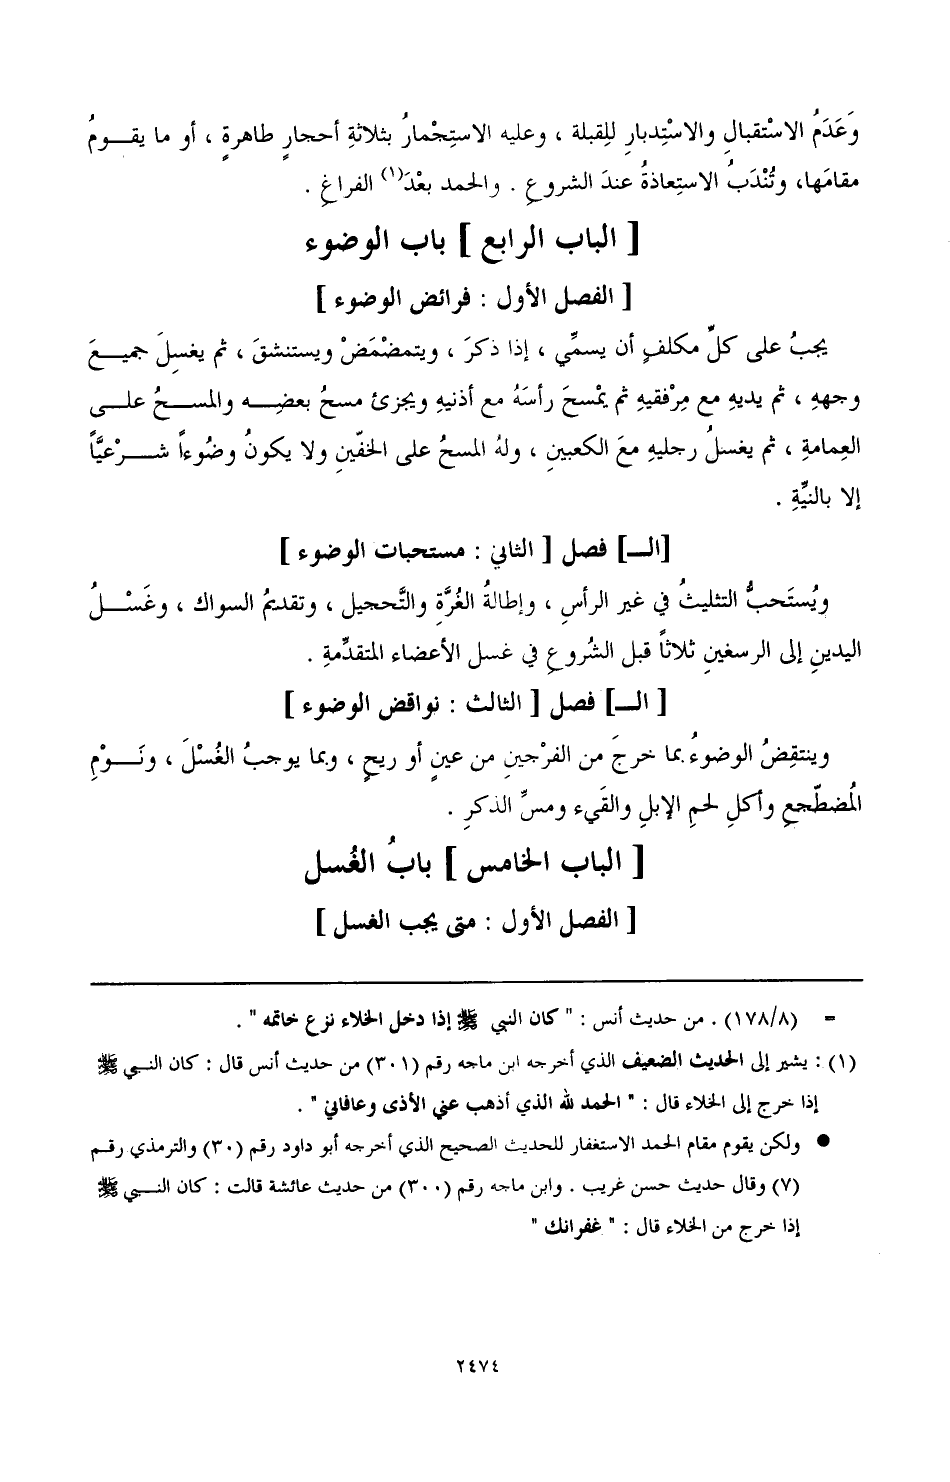 وَعَدَمُ الاسْتقبالِ والاسْتِدبارِ للِقبلة ، وعليه الاستِجْمارُ بثلاثةِ أحجارٍ طاهرةٍ ، أو ما يقومُ
مقامَها، وتُنْدَبُ الاستِعاذةُ عندَ الشروعِ . والحمد بعْدَ(١) الفراغِ .
[ الباب الرابع ] باب الوضوء
[ الفصل الأول : فرائض الوضوء ]
يجبُ على كلِّ مكلفٍ أن يسمِّي ، إذا ذكرَ ، ويتمضْمَضْ ويستنشقَ ، ثم يغسِلَ جميعَ
وجههِ ، ثم يديهِ مع مِرْفقيهِ ثم يمْسحَ رأسَهُ مع أذنيهِ ويجزئ مسحُ بعضِهِ والمسحُ على
العِمامةِ ، ثم يغسلُ رجليهِ معَ الكعبينِ ، ولهُ المسحُ على الخفّينِ ولا يكونُ وضُوءاً شرْعيَّاً
إلا بالنيَّةِ .
[الـ] فصل [ الثاني : مستحبات الوضوء ]
ويُستَحبُّ التثليثُ في غير الرأسِ ، وإطالةُ الغُرَّةِ والتَّحجيل ، وتقديمُ السواك ، وغَسْلُ
اليدينِ إلى الرسغينِ ثلاثاً قبل الشُروعِ في غسل الأعضاء المتقدِّمةِ .
[ الـ] فصل [ الثالث : نواقض الوضوء ]
وينتقِضُ الوضوءُ بما خرجَ من الفرْجينِ من عينٍ أو ريحٍ ، وبما يوجبُ الغُسْلَ ، ونَوْمِ
المُضطّجعِ وأكلِ لحمِ الإبلِ والقَيء ومسِّ الذكرِ .
[ الباب الخامس ] بابُ الغُسل
[ الفصل الأول : متى يجب الغسل ]
= (١٧٨/٨) . من حديث أنس : " كان النبي ﷺ إذا دخل الخلاء نزع خاتمه " .
(١) : يشير إلى الحديث الضعيف الذي أخرجه ابن ماجه رقم (٣٠١) من حديث أنس قال : كان النبي ﷺ
إذا خرج إلى الخلاء قال : " الحمد لله الذي أذهب عني الأذى وعافاني " .
● ولكن يقوم مقام الحمد الاستغفار للحديث الصحيح الذي أخرجه أبو داود رقم (٣٠) والترمذي رقم
(٧) وقال حديث حسن غريب . وابن ماجه رقم (٣٠٠) من حديث عائشة قالت : كان النبي ﷺ
إذا خرج من الخلاء قال : " غفرانك "
٢٤٧٤